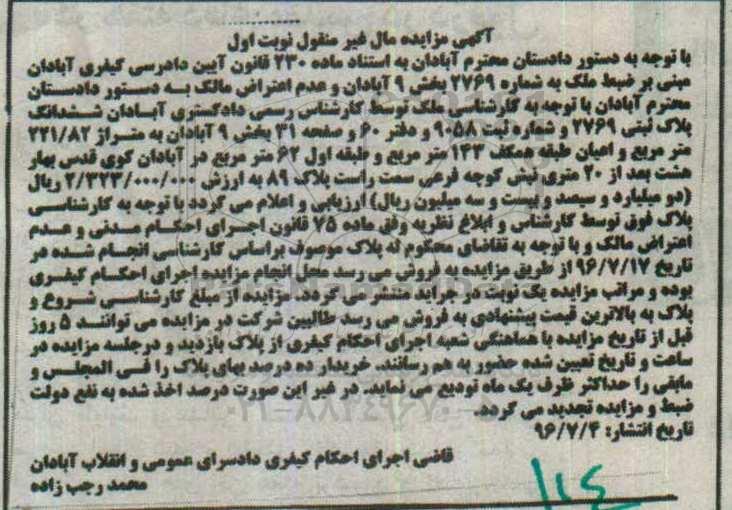 آگهی مزایده مال غیر منقول نوبت اول
با توجه به دستور دادستان محترم آبادان به استناد ماده ۲۳۰ قانون آیین دادرسی کیفری آبادان
مبنی بر ضبط ملک به شماره ۲۷۶۹ بخش ۹ آبادان و عدم اعتراض مالک به دستور دادستان
محترم آبادان با توجه به کارشناسی ملک توسط کارشناس رسمی دادگستری آبادان ششدانگ
پلاک ثبتی ۲۷۶۹ و شماره ثبت ۹۰۵۸ و دفتر ۶۰ و صفحه ۳۱ بخش ۹ آبادان به متراژ ۲۲۱/۸۲
متر مربع و اعیان طبقه همکف ۱۴۳ متر مربع و طبقه اول ۶۲ متر مربع در آبادان کوی قدس بهار
هشت بعد از ۲۰ متری نبش کوچه فرعی سمت راست پلاک ۸۹ به ارزش ۲/۳۲۳/۰۰۰/۰۰۰ ریال
(دو میلیارد و سیصد و بیست و سه میلیون ریال) ارزیابی و اعلام می گردد با توجه به کارشناسی
پلاک فوق توسط کارشناس و ابلاغ نظریه وفق ماده ۷۵ قانون اجرای احکام مدنی و عدم
اعتراض مالک و با توجه به تقاضای محکوم له پلاک موصوف براساس کارشناسی انجام شده در
تاریخ ۹۶/۷/۱۷ از طریق مزایده به فروش می رسد محل انجام مزایده اجرای احکام کیفری
بوده و مراتب مزایده یک نوبت در جراید منتشر می گردد. مزایده از مبلغ کارشناسی شروع و
پلاک به بالاترین قیمت پیشنهادی به فروش می رسد طالبین شرکت در مزایده می توانند ۵ روز
قبل از تاریخ مزایده با هماهنگی شعبه اجرای احکام کیفری از پلاک بازدید و درجلسه مزایده در
ساعت و تاریخ تعیین شده حضور به هم رسانند. خریدار ده درصد بهای پلاک را فی المجلس و
مابقی را حداکثر ظرف یک ماه تودیع می نماید. در غیر این صورت درصد اخذ شده به نفع دولت
ضبط و مزایده تجدید می گردد.
تاریخ انتشار: ۹۶/۷/۴
قاضی اجرای احکام کیفری دادسرای عمومی و انقلاب آبادان
محمد رجب زاده